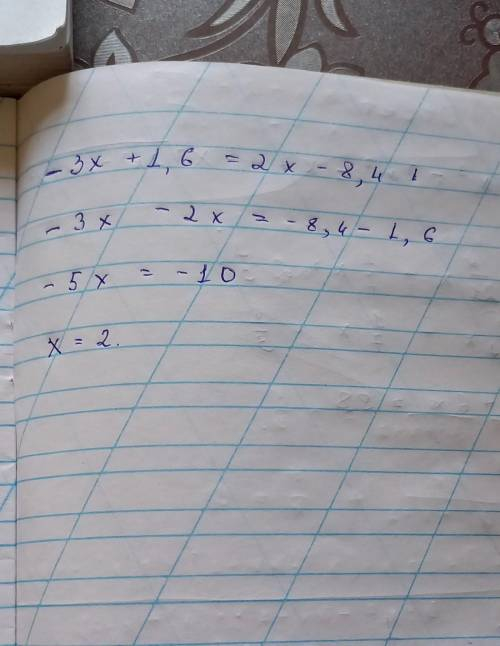 -3x + 1,6 = 2x - 8,4
-3x - 2x = -8,4 - 1,6
-5x = -10
x = 2.